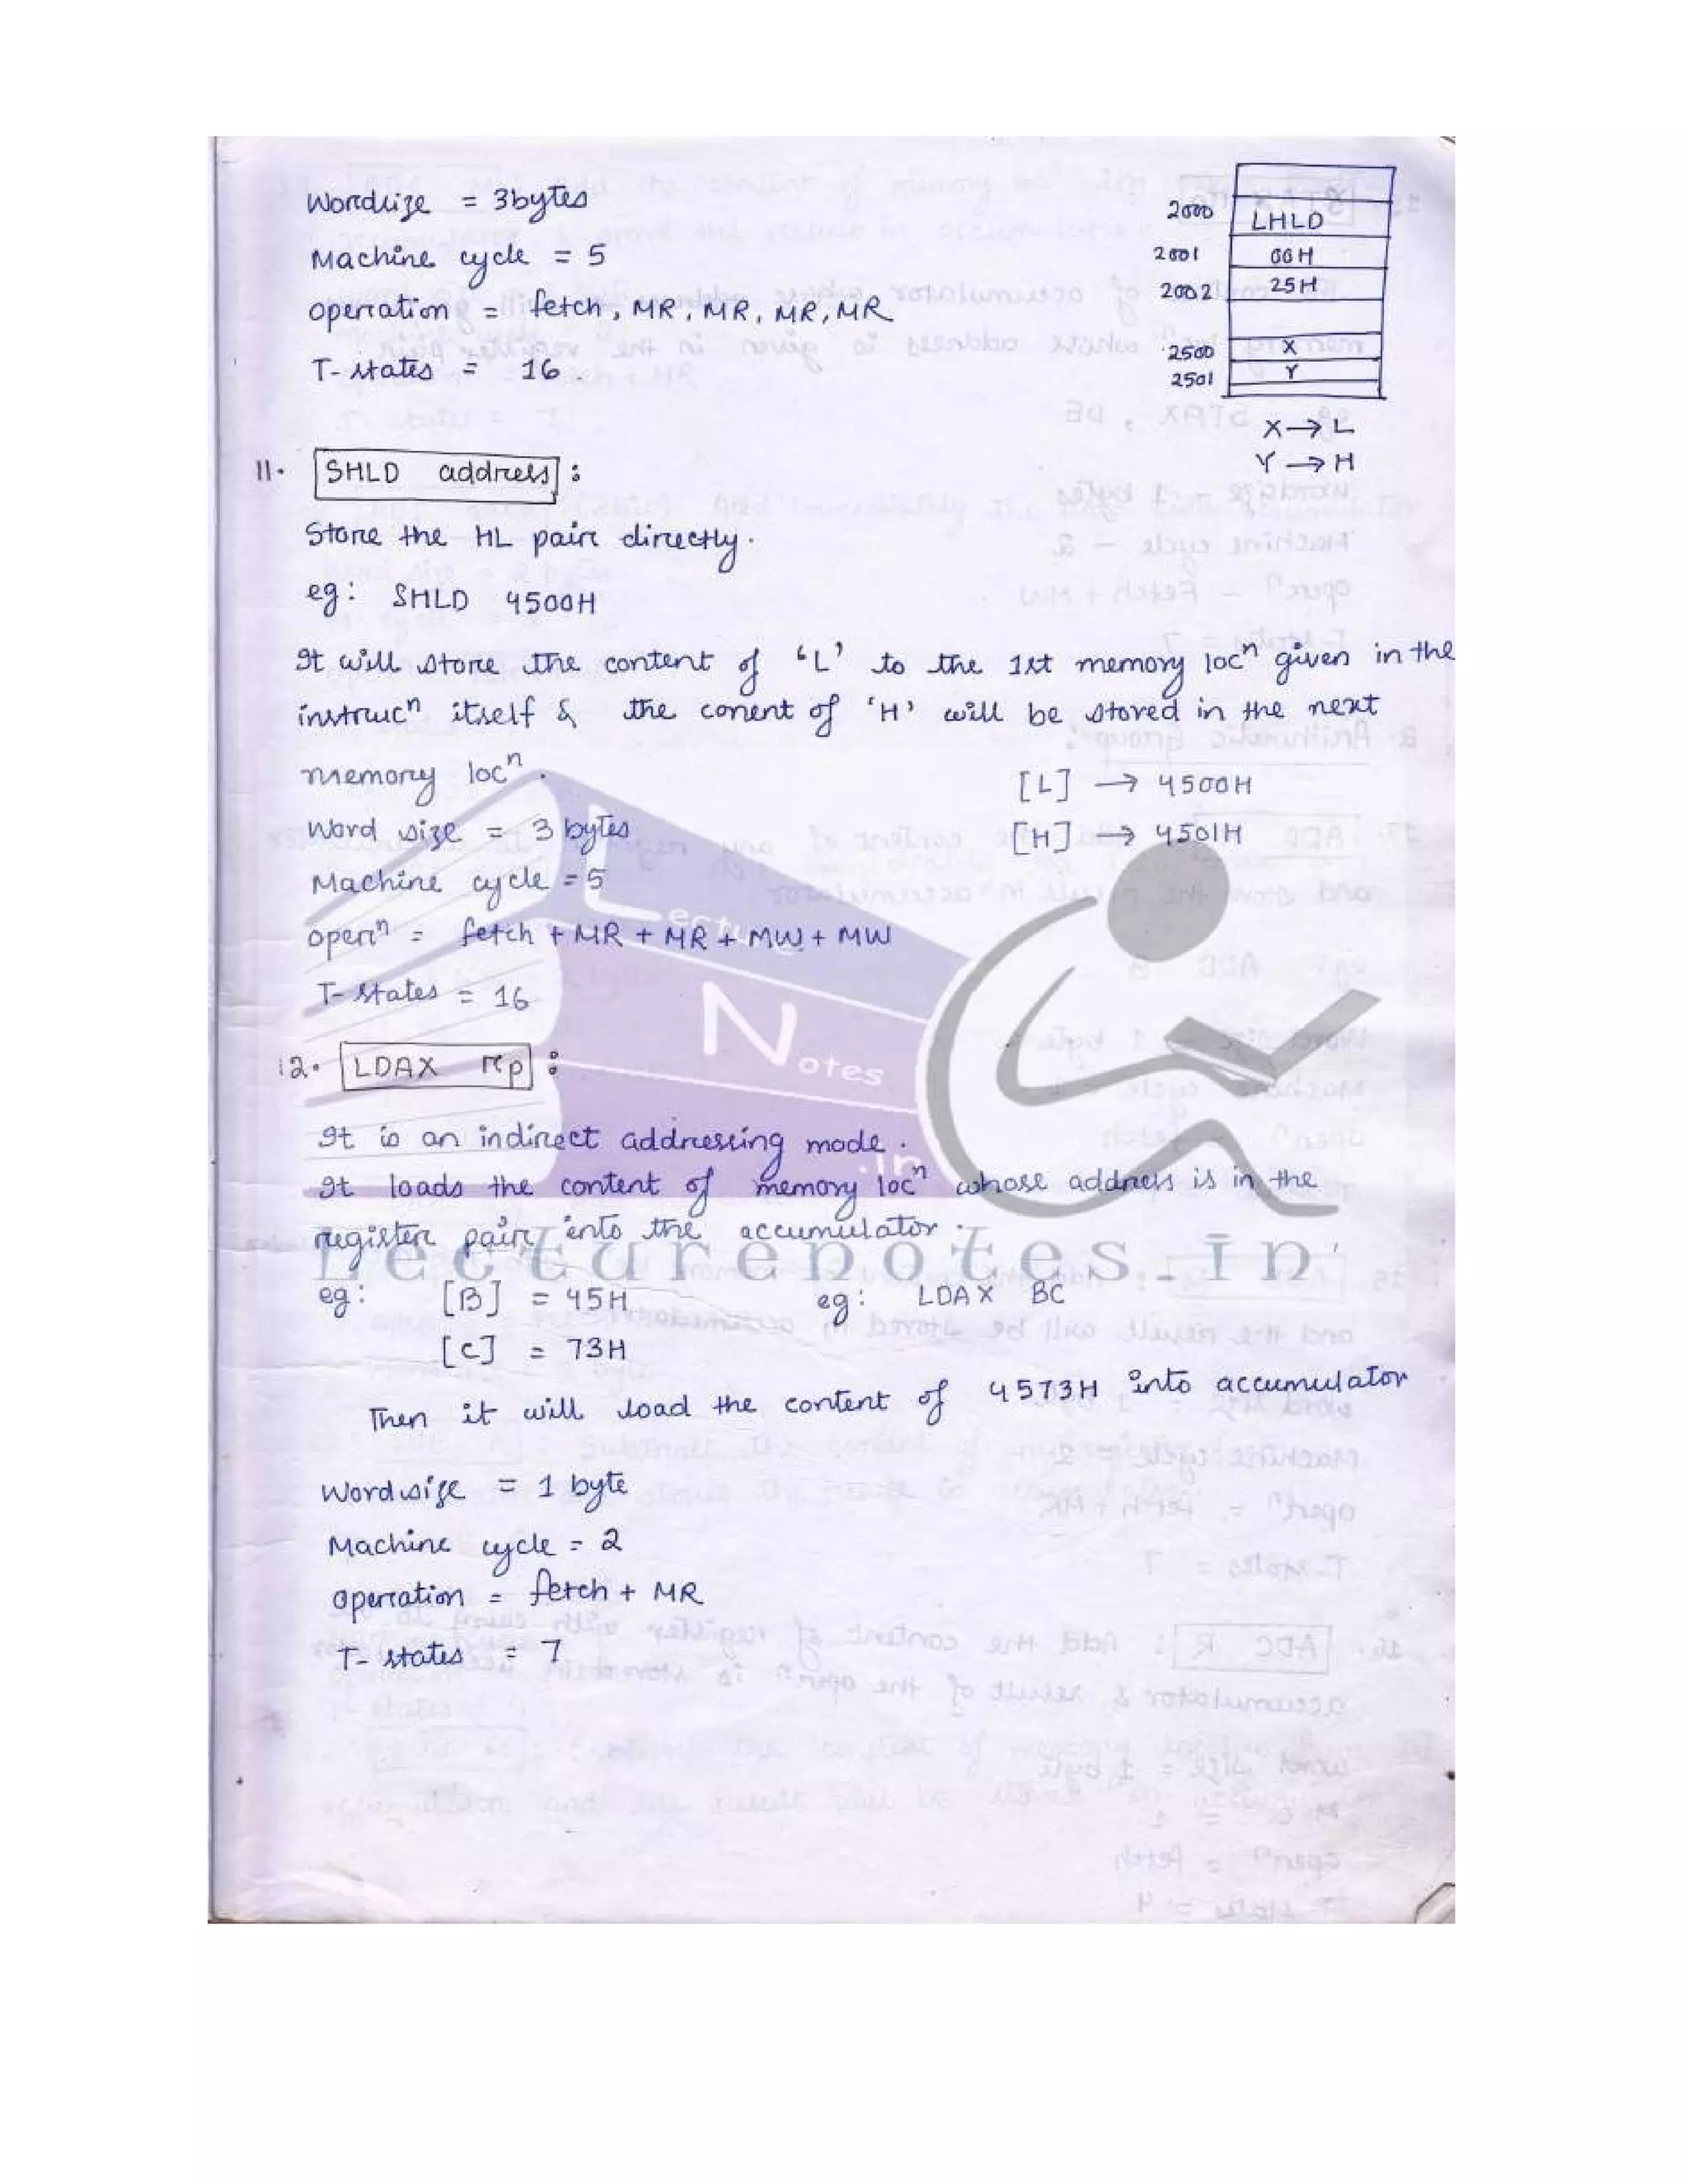 Wordsize = 3bytes
Machine cycle = 5
operation = fetch, MR, MR, MR, MR
T-states = 16.
2000 LHLD
2001 00H
2002 25H
2500 X
2501 Y
X → L
Y → H
11. SHLD address :
Store the HL pair directly.
eg: SHLD 4500H
It will store the content of 'L' to the 1st memory locⁿ given in the
instrucⁿ itself & the conent of 'H' will be stored in the next
memory locⁿ.
[L] → 4500H
[H] → 4501H
Word size = 3 bytes
Machine cycle = 5
operⁿ = fetch + MR + MR + MW + MW
T-states = 16
12. LDAX rp :
It is an indirect addressing mode.
It loads the content of memory locⁿ whose address is in the
register pair into the accumulator.
eg: [B] = 45H eg: LDAX BC
[C] = 73H
Then it will load the content of 4573H into accumulator
Wordsize = 1 byte
Machine cycle = 2
operation = fetch + MR
T-states = 7
Lecture
Notes
.in
Lecturenotes.in